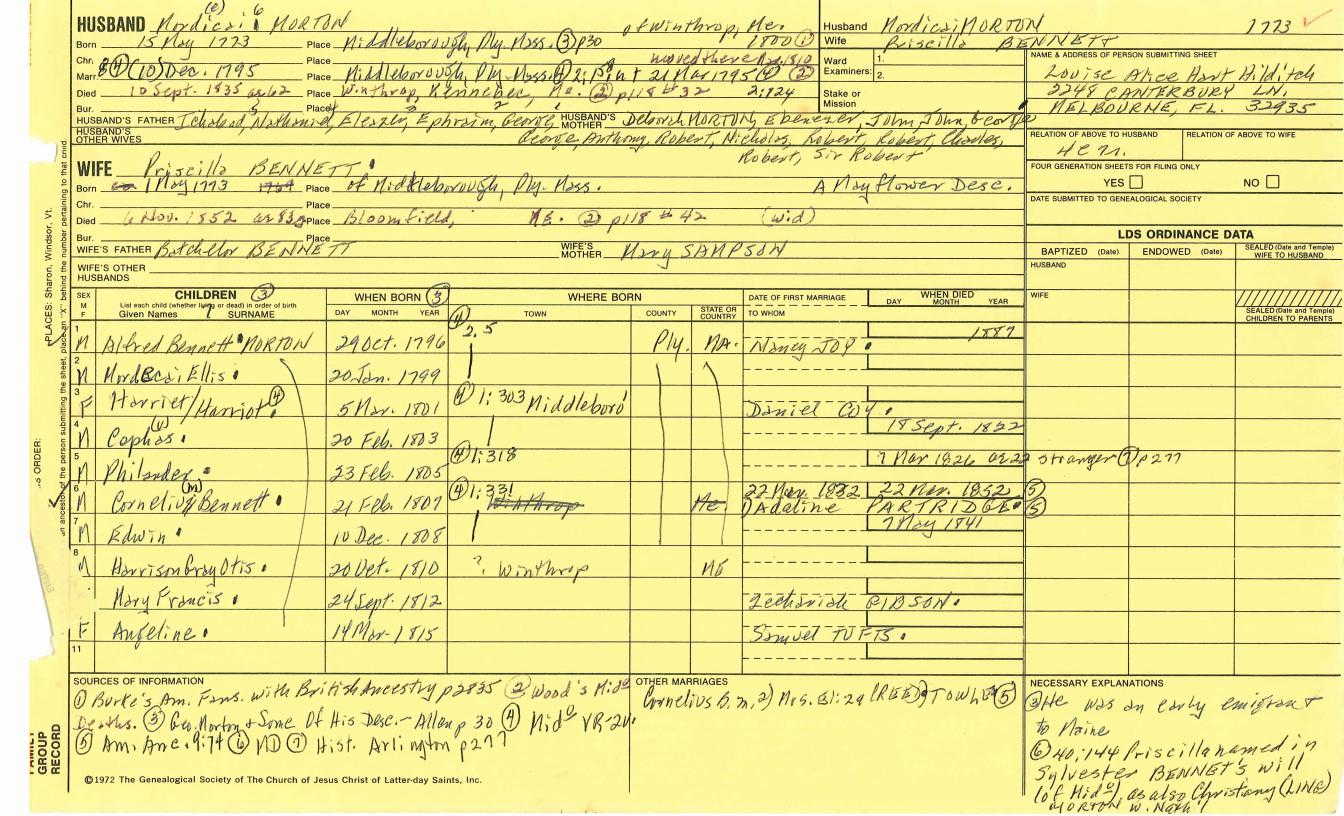 HUSBAND Mordicai MORTON (e) 6 of Winthrop, Me.
Born 15 May 1773 Place Middleborough, Ply. Mass. ③ p30 1800 ①
Chr. Place moved there
Marr. ④ (10) Dec. 1795 Place Middleborough, Ply. Mass. ④ 2: int 21 Mar 1795 ④ ②
Died 10 Sept. 1835 ae 62 Place Winthrop, Kennebec, Me. ② p118 #32 2:124
Bur. Place
HUSBAND'S FATHER Ichabod, Nathaniel, Eleazer, Ephraim, George, HUSBAND'S MOTHER Deborah MORTON, Ebenezer, John, John, George
HUSBAND'S OTHER WIVES George, Anthony, Robert, Nicholas, Robert, Robert, Charles,
Robert, Sir Robert
Husband Mordicai MORTON 1773
Wife Priscilla BENNETT
Ward 1.
Examiners: 2.
Stake or Mission
NAME & ADDRESS OF PERSON SUBMITTING SHEET
Louise Alice Hart Hilditch
2248 CANTERBURY LN.
MELBOURNE, FL. 32935
RELATION OF ABOVE TO HUSBAND RELATION OF ABOVE TO WIFE
FOUR GENERATION SHEETS FOR FILING ONLY
YES NO
DATE SUBMITTED TO GENEALOGICAL SOCIETY
WIFE Priscilla BENNETT
Born 1 May 1773 Place of Middleborough, Ply. Mass. A Mayflower Desc.
Chr. Place
Died 6 Nov. 1852 ae 83 Place Bloomfield, ME. ② p118 #42 (wid)
Bur. Place
WIFE'S FATHER Batchellor BENNETT WIFE'S MOTHER Mary SAMPSON
WIFE'S OTHER HUSBANDS
LDS ORDINANCE DATA
BAPTIZED (Date) ENDOWED (Date) SEALED (Date and Temple) WIFE TO HUSBAND
HUSBAND
WIFE
SEALED (Date and Temple) CHILDREN TO PARENTS
SEX M F CHILDREN ③ WHEN BORN ③ WHERE BORN DATE OF FIRST MARRIAGE WHEN DIED
List each child (whether living or dead) in order of birth
Given Names SURNAME DAY MONTH YEAR TOWN COUNTY STATE OR COUNTRY TO WHOM DAY MONTH YEAR
1 M Alfred Bennett MORTON 29 Oct. 1796 ④ 2.5 Ply. MA. Nancy JOY 1887
2 M Mordecai Ellis 20 Jan. 1799
3 F Harriet/Harriot ④ 5 Mar. 1801 ④ 1:303 Middleboro Daniel COY
4 M Cephas 20 Feb. 1803 18 Sept. 1822
5 M Philander 23 Feb. 1805 ④ 1:318 7 Mar 1826 ae 22 stranger ⑦ p277
6 M Cornelius (m) Bennett 21 Feb. 1807 ④ 1:331 Winthrop Me. 22 Nov. 1852 ⑤
Adaline PARTRIDGE ⑤
7 M Edwin 10 Dec. 1808 7 May 1841
8 M Harrison Gray Otis 20 Oct. 1810 ? Winthrop ME
Mary Francis 24 Sept. 1812 Zechariah GIBSON
F Angeline 14 Mar. 1815 Samuel TUFTS
11
SOURCES OF INFORMATION
① Burke's Am. Fams. with British Ancestry p2835 ② Wood's Mido
Deaths. ③ Geo. Morton & Some Of His Desc. - Allen p 30 ④ Mido VR-2v.
⑤ Am. Anc. 9:74 ⑥ MD ⑦ Hist. Arlington p277
OTHER MARRIAGES
Cornelius B. m. 2) Mrs. Eliza (REED) TOWLE ⑤
NECESSARY EXPLANATIONS
He was an early emigrant
to Maine
⑥ 40:144 Priscilla named in
Sylvester BENNET'S will
(of Mido), as also Christiany (LINE)
MORTON w. Nath'l
©1972 The Genealogical Society of The Church of Jesus Christ of Latter-day Saints, Inc.
PLACES: Sharon, Windsor, Vt.
FAMILY GROUP RECORD